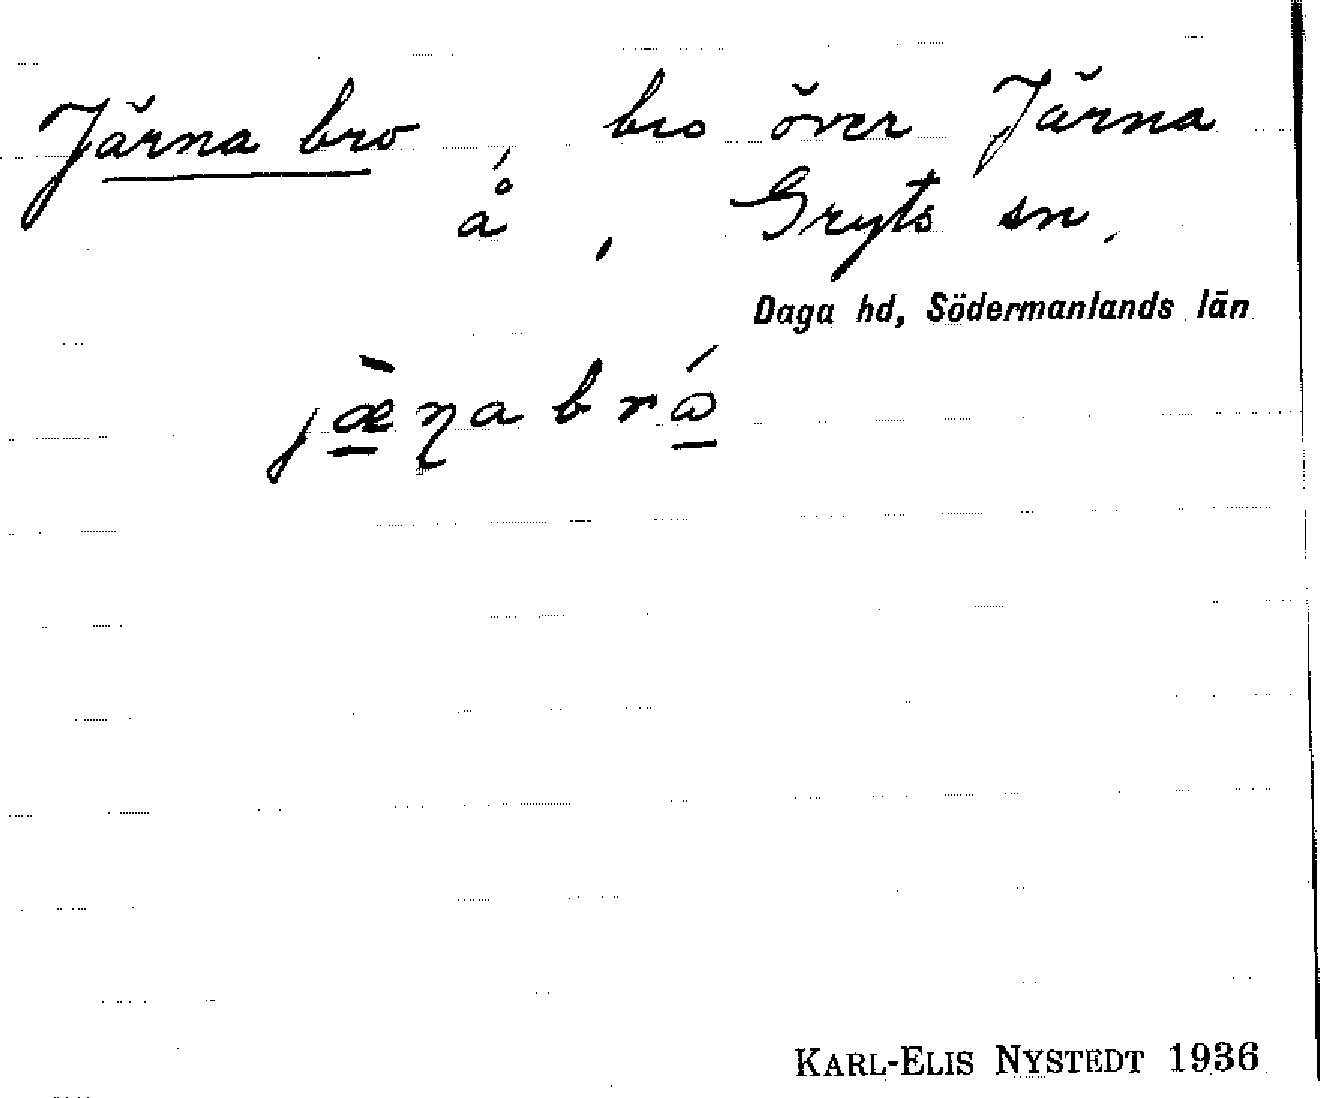 Järna bro, bro över Järna
å, Gryts sn.
Daga hd, Södermanlands län
jæ̱̀ɳa brɷ̱́
KARL-ELIS NYSTEDT 1936